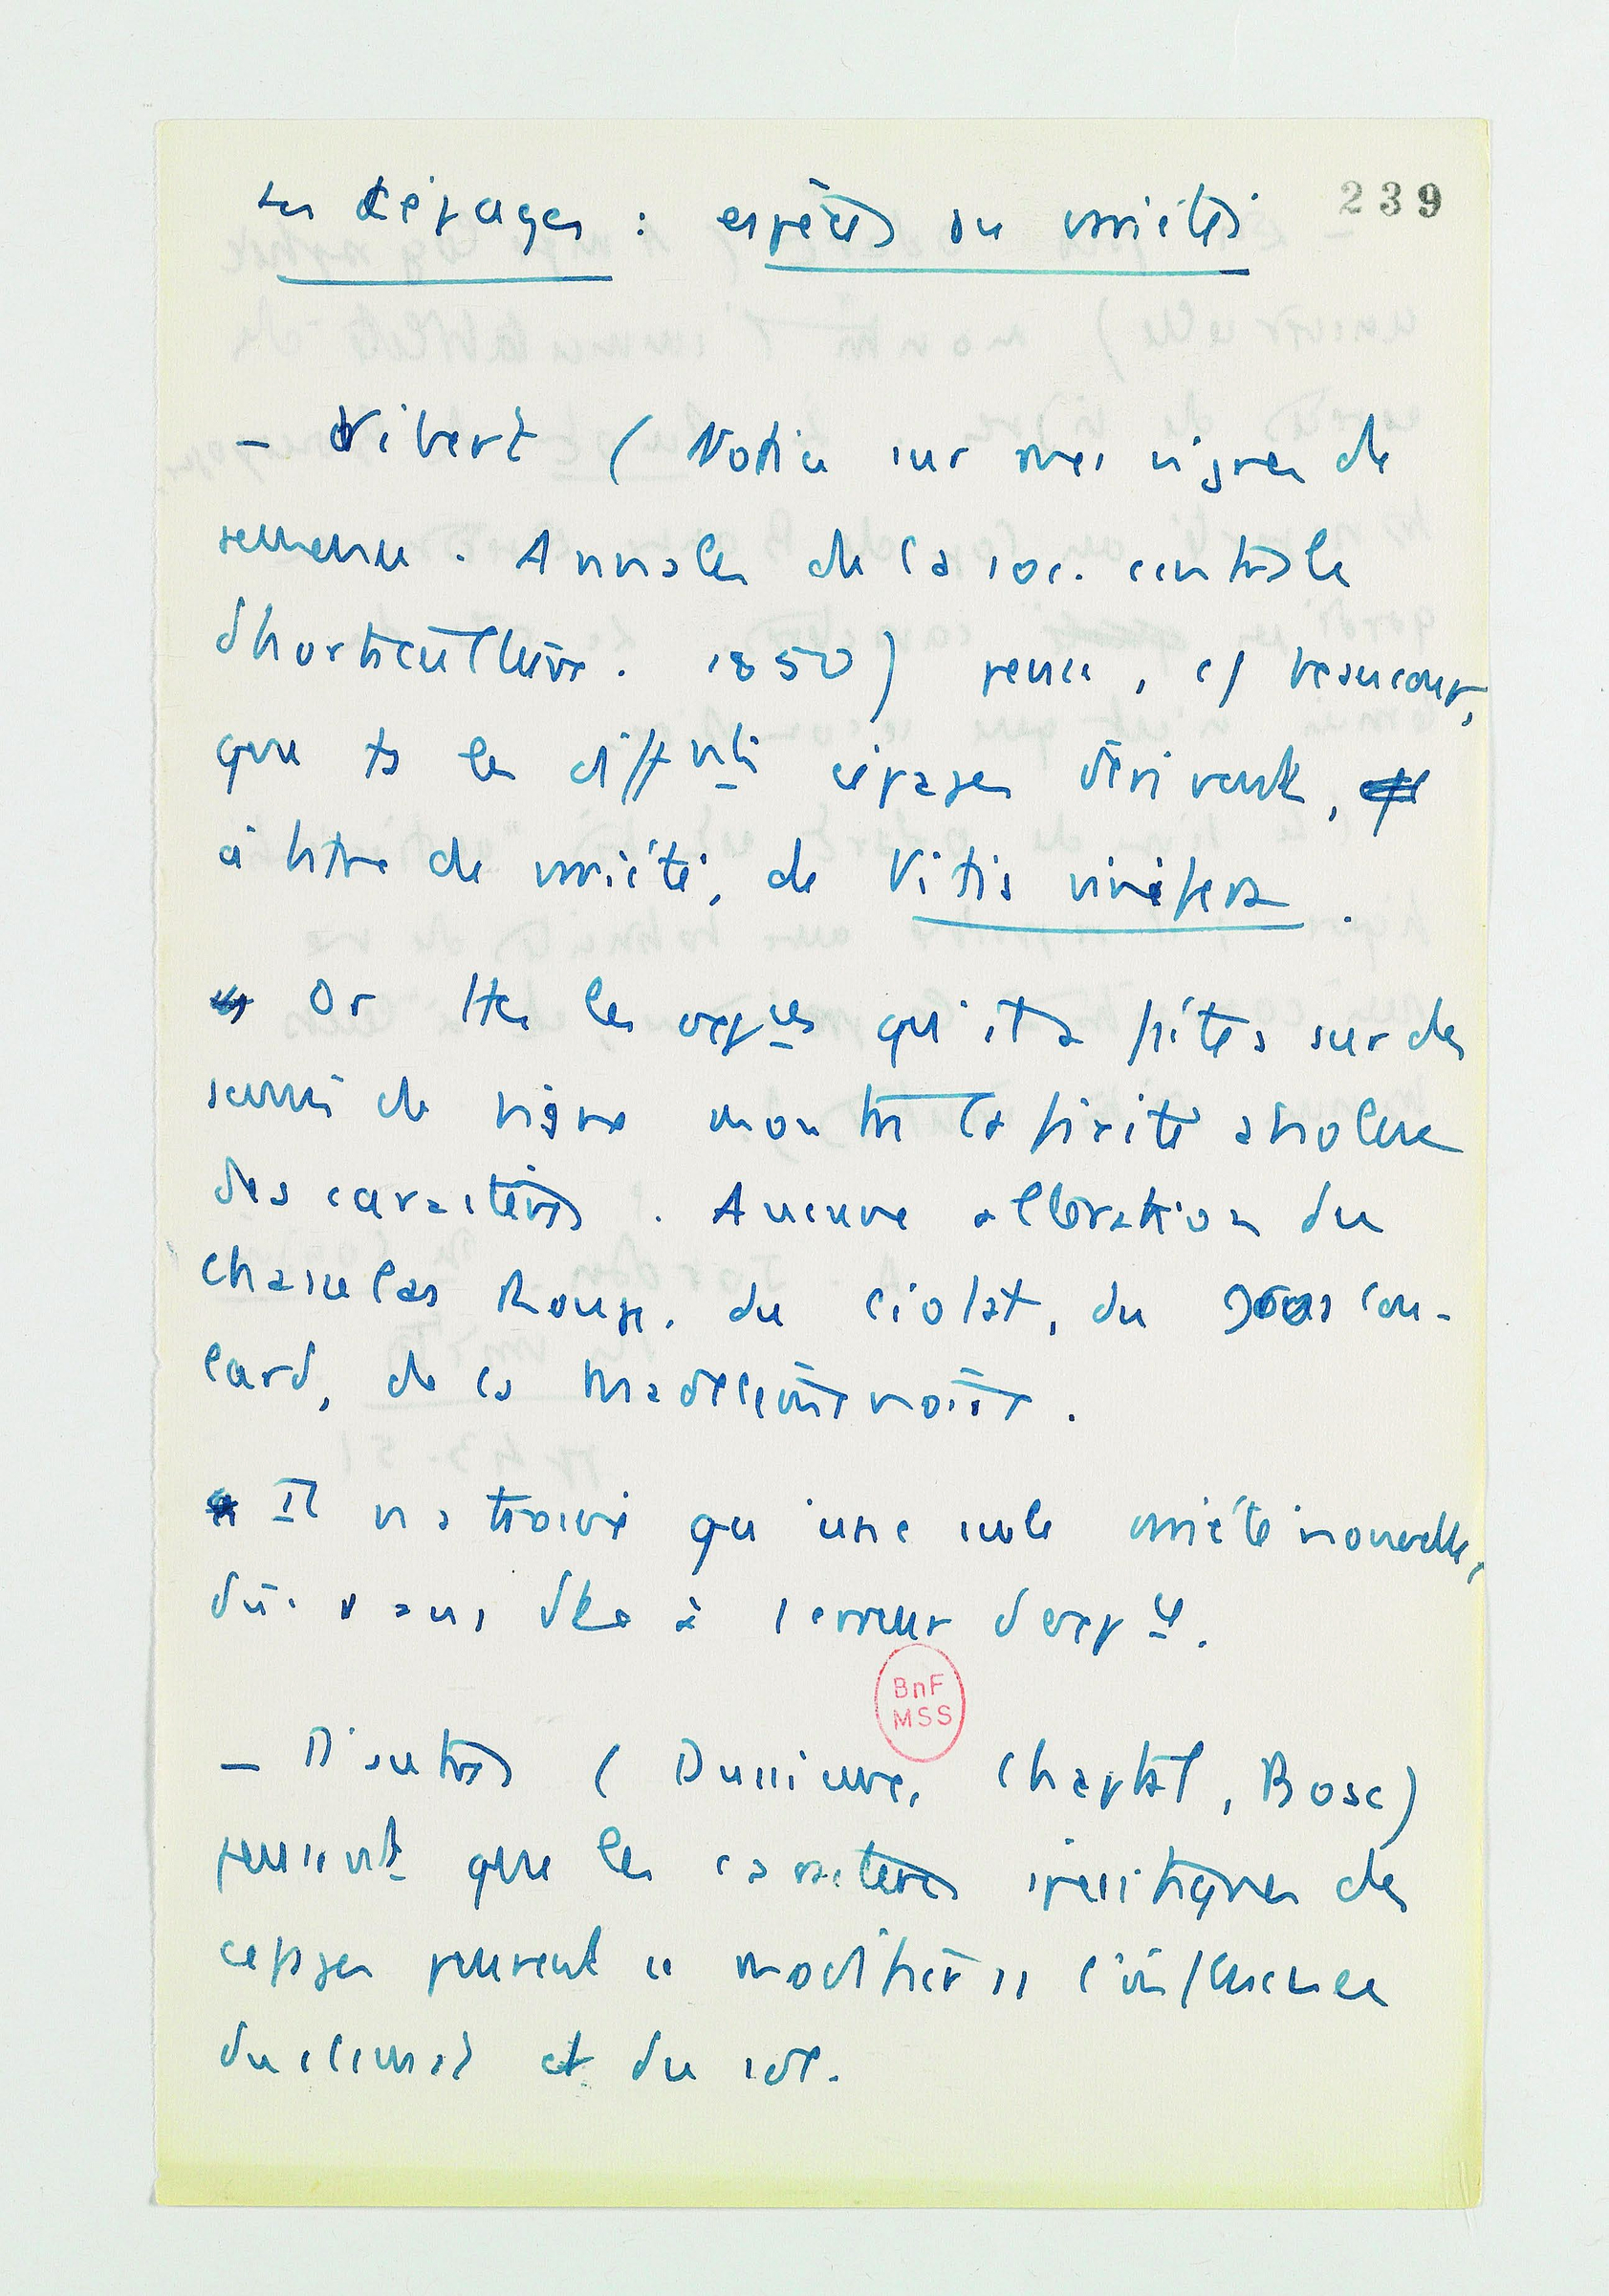 239
Les Cépages : espèces ou variétés
– Vibert (Notice sur mes vignes de
semence. Annales de la soc. centrale
d'horticulture. 1850) pense, c/ beaucoup,
que ts les difft cépages dérivent,
à titre de variété, de Vitis vinifera.
Or ttes les expces qu'il a faites sur des
semis de vigne montre la fixité absolue
des caractères. Aucune altération du
chasselas Rouge, du ciotat, du gros cou-
lard, de la Madeleine noire.
Il n'a trouvé qu'une seule variété nouvelle,
due sans dte à 1 erreur d'expce.
BnF
MSS
– D'autres (Dussieux, Chaptal, Bosc)
pensent que les caractères spécifiques des
cépages peuvent se modifier ss l'influence
du climat et du sol.